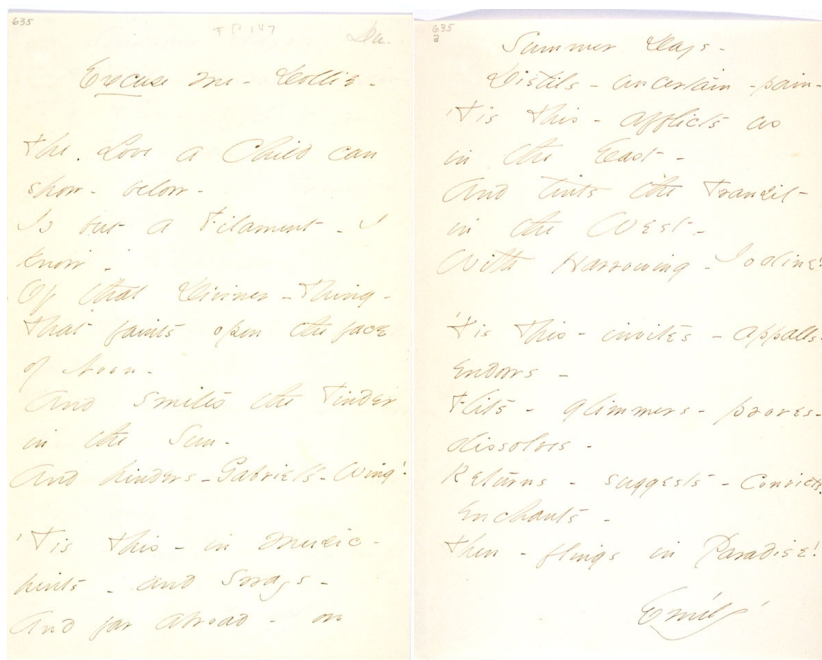 635
Excuse me - Dollie -
The Love a Child can
show - below -
Is but a Filament - I
know -
Of that Diviner - Thing -
That faints opon the face
of Noon -
And smites the Tinder
in the Sun -
And hinders - Gabriel's - Wing!
'Tis this - in Music -
hints - and Sways -
And far abroad - on
635
2
Summer days -
Distils - uncertain - pain -
'Tis this - afflicts us
in the East -
And tints the Transit -
in the West -
With Harrowing - Iodine!
'Tis this - invites - appalls -
Endows -
Flits - glimmers - proves -
dissolves -
Returns - suggests - Convicts
Enchants -
Then - flings in Paradise!
Emily